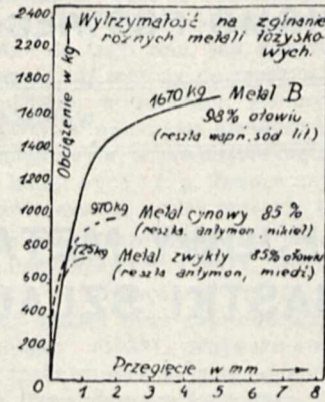 2400
2200
2000
1800
1600
1400
1200
1000
800
600
400
200
0
Obciążenie w kg
Wytrzymałość na zginanie
różnych metali łożysko-
wych.
1670 kg Metal B
98% ołowiu
(reszta wapń, sód lit)
970 kg Metal cynowy 85%
(reszta antymon, nikiel)
725 kg Metal zwykły 85% ołowiu
(reszta antymon, miedź)
Przegięcie w mm
1 2 3 4 5 6 7 8